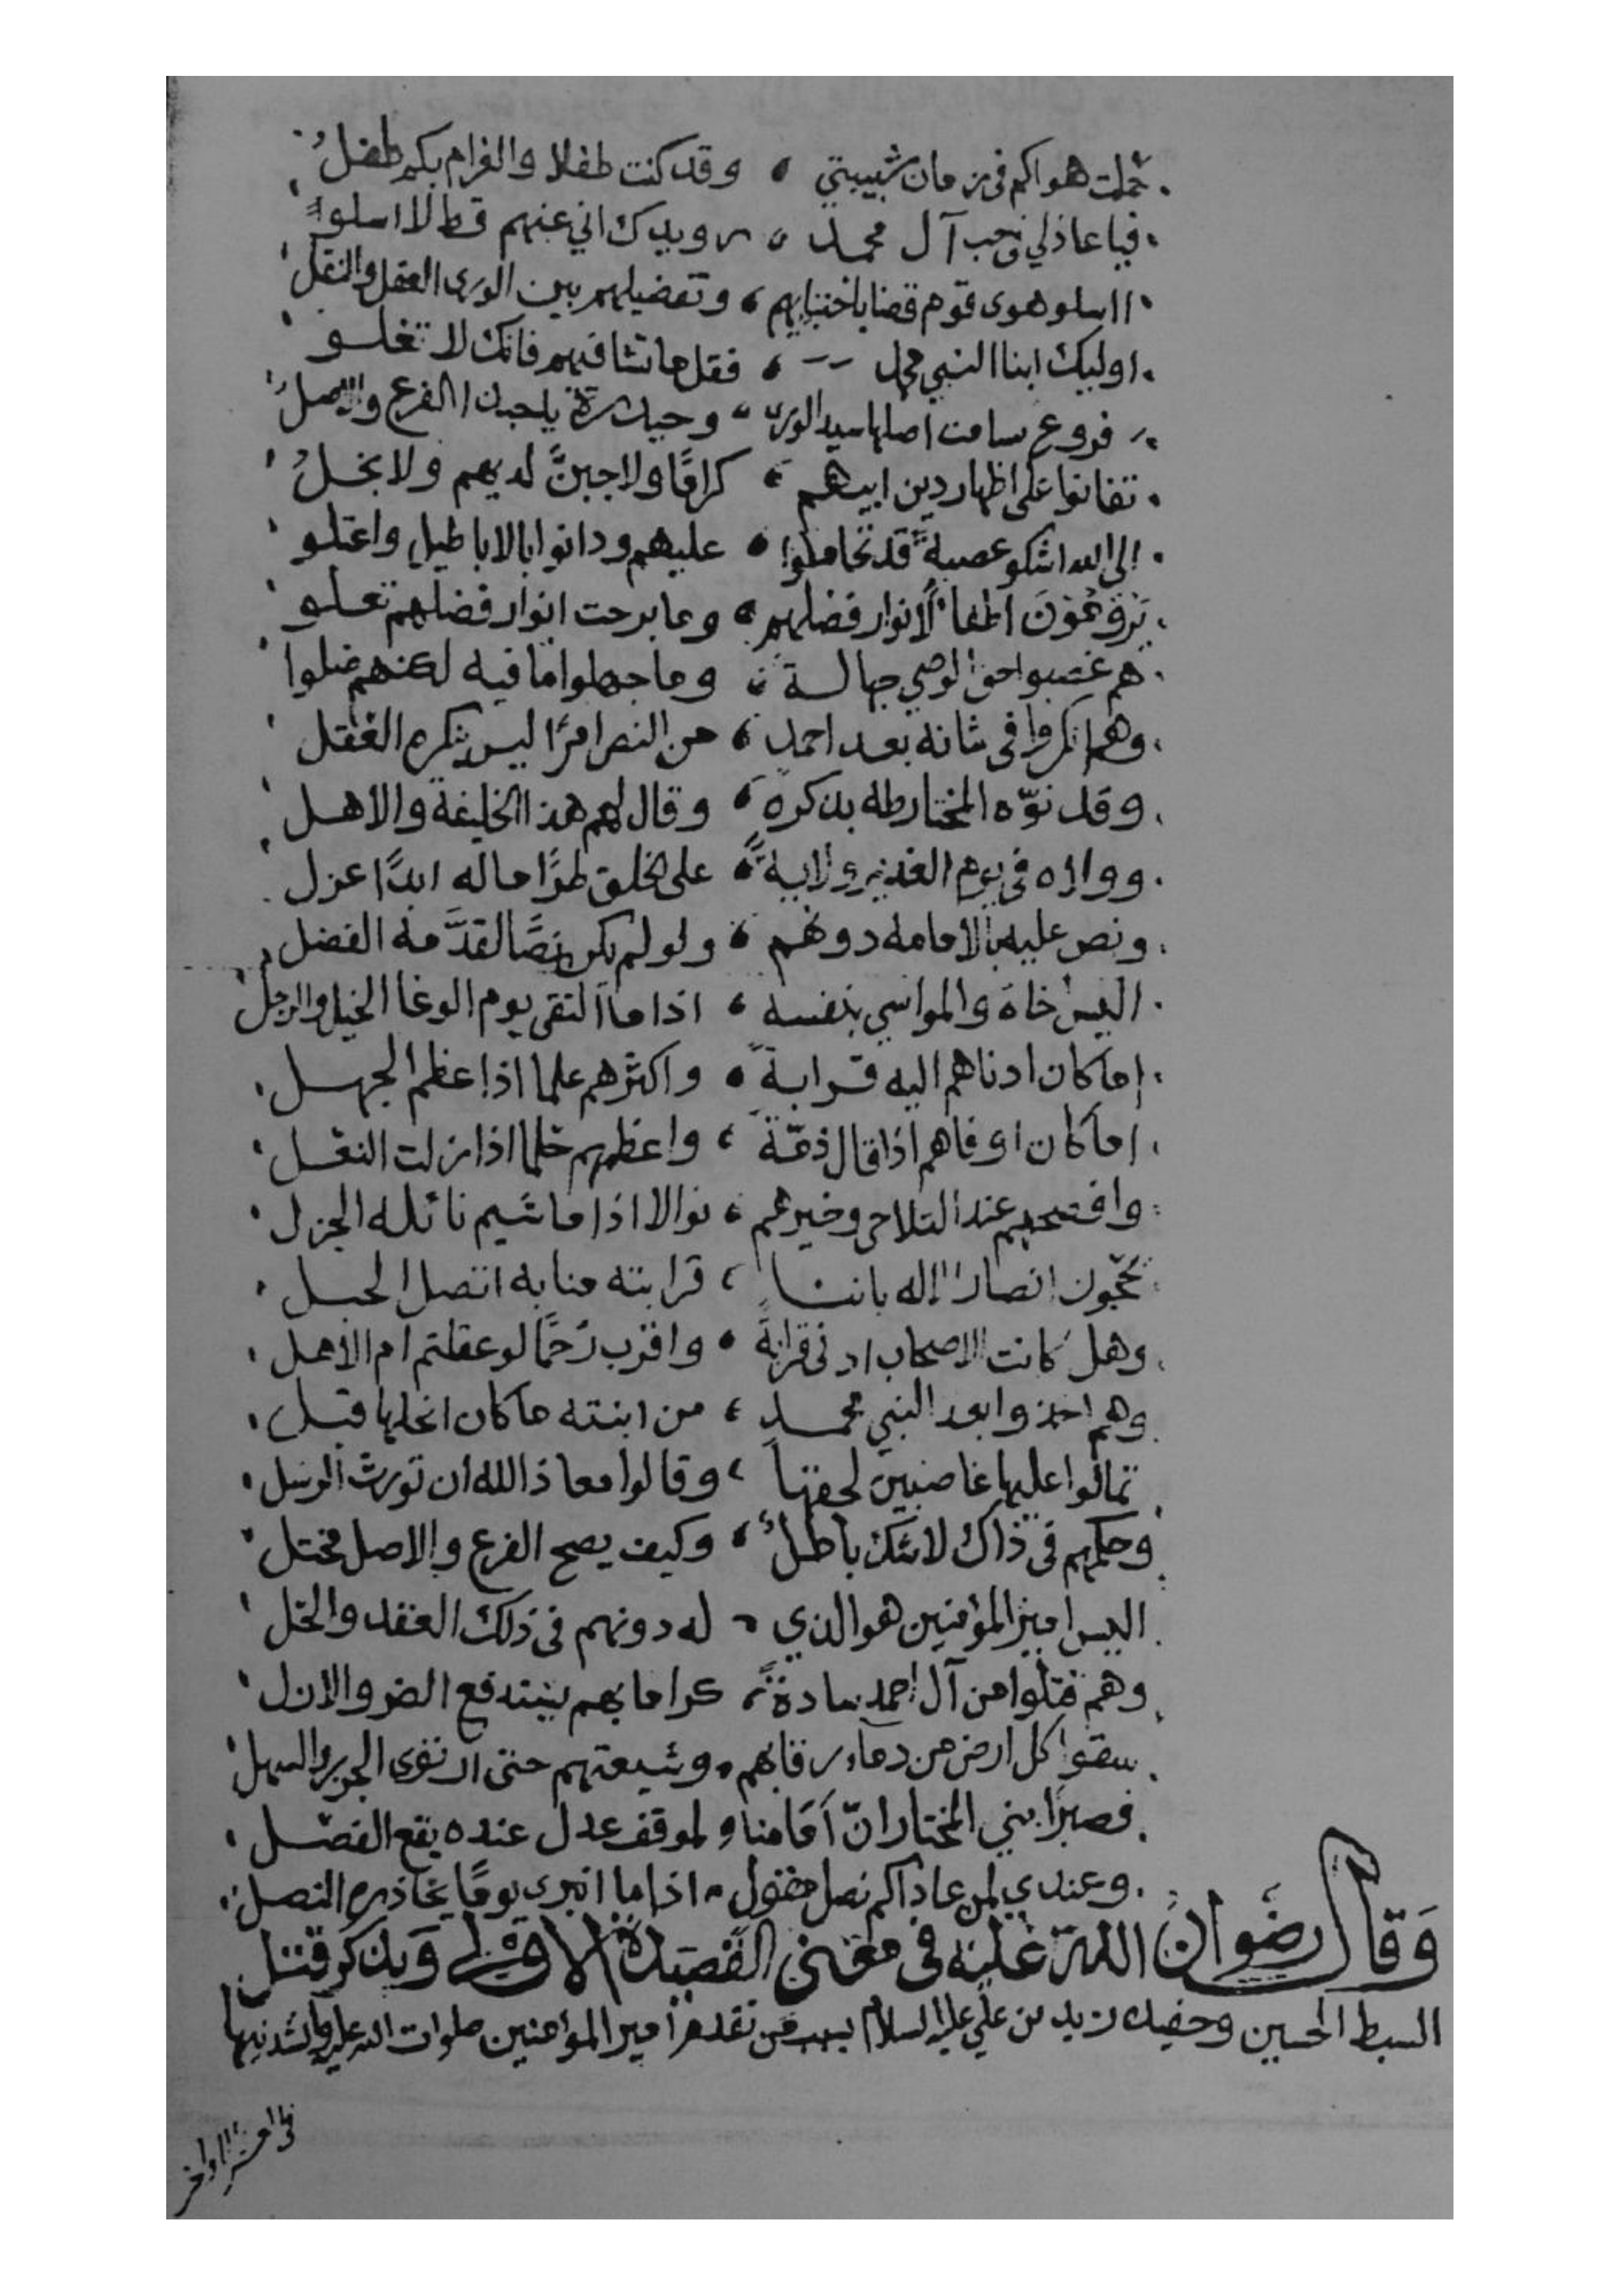 حملت هواكم في زمان شبيبتي وقد كنت طفلا والغرام بكم طفلُ
فيا عاذلي في حب آل محمد رويدك اني عنهم قط لا اسلوا
ااسلو هوى قوم قضا باجتبايهم وتفضيلهم بين الورى العقل والنقل
اوليك ابنا النبي محمد فقل ما تشا فيهم فانك لا تغلو
فروع سامت اصلها سيد الورى وحيدرة يا حبذا الفرع والاصلُ
تفانوا على اظهار دين ابيهم كرامًا ولا جبنٌ لديهم ولا بخلُ
الى الله اشكو عصبةً قد تحاملوا عليهم ودانوا بالاباطيل واعتلو
يرومون اطفاءً لانوار فضلهم وما برحت انوار فضلهم تعلو
هم غصبوا حق الوصي جهالة وما جهلوا ما فيه لكنهم ضلوا
وهم انكروا في شانه بعد احمد من النص امرًا ليس ينكره العقل
وقد نوّه المختار طه بذكره وقال لهم هذا الخليفة والاهل
وولاه في يوم الغدير ولايةً على الخلق طرًا ماله ابدًا عزل
ونص عليه بالامامه دونهم ولو لم يكن نصًا لقدَّمه الفضل
اليس خاه والمواسي بنفسه اذا ما التقى يوم الوغا الخيل والرجل
اما كان ادناهم اليه قرابة واكثرهم علما اذا عظم الجهل
اما كان اوفاهم اذا قال ذمّة واعظمهم حلما اذا زلت النعل
وافصحهم عند التلاحي وخيرهم نوالا اذا ما شيم نائله الجزل
تحجّون انصار الاله باننا قرابته منا به اتصل الحبل
وهل كانت الاصحاب ادنى قرابةً واقرب رحمًا لو عقلتم ام الاهل
وهم اخذوا بعد النبي محمد من ابنته ما كان انحلها قبل
تمالوا عليها غاصبين لحقها وقالوا معاذ الله ان تورث الرسل
وحكمهم في ذاك لا شك باطلُ وكيف يصح الفرع والاصل مختل
اليس امير المؤمنين هو الذي له دونهم في ذلك العقد والحل
وهم قتلوا من آل احمد سادةً كراما بهم يستدفع الضر والازل
سقوا كل ارض من دماء رقابهم وشيعتهم حتى ارتوى الحزن والسهل
فصبرًا بني المختار انّ امامنا لموقف عدل عنده يقع الفصل
وعندي لمن عاداكم نصل مقول اذا ما انبرى يومًا يحاذره النصل
وقال رضوان الله عليه في معنى القصيدة الاولى ويذكر قتل
السبط الحسين وحفيده زيد بن علي عليه السلام بسبب من تقدم امير المؤمنين صلوات الله عليه وانشد نيها